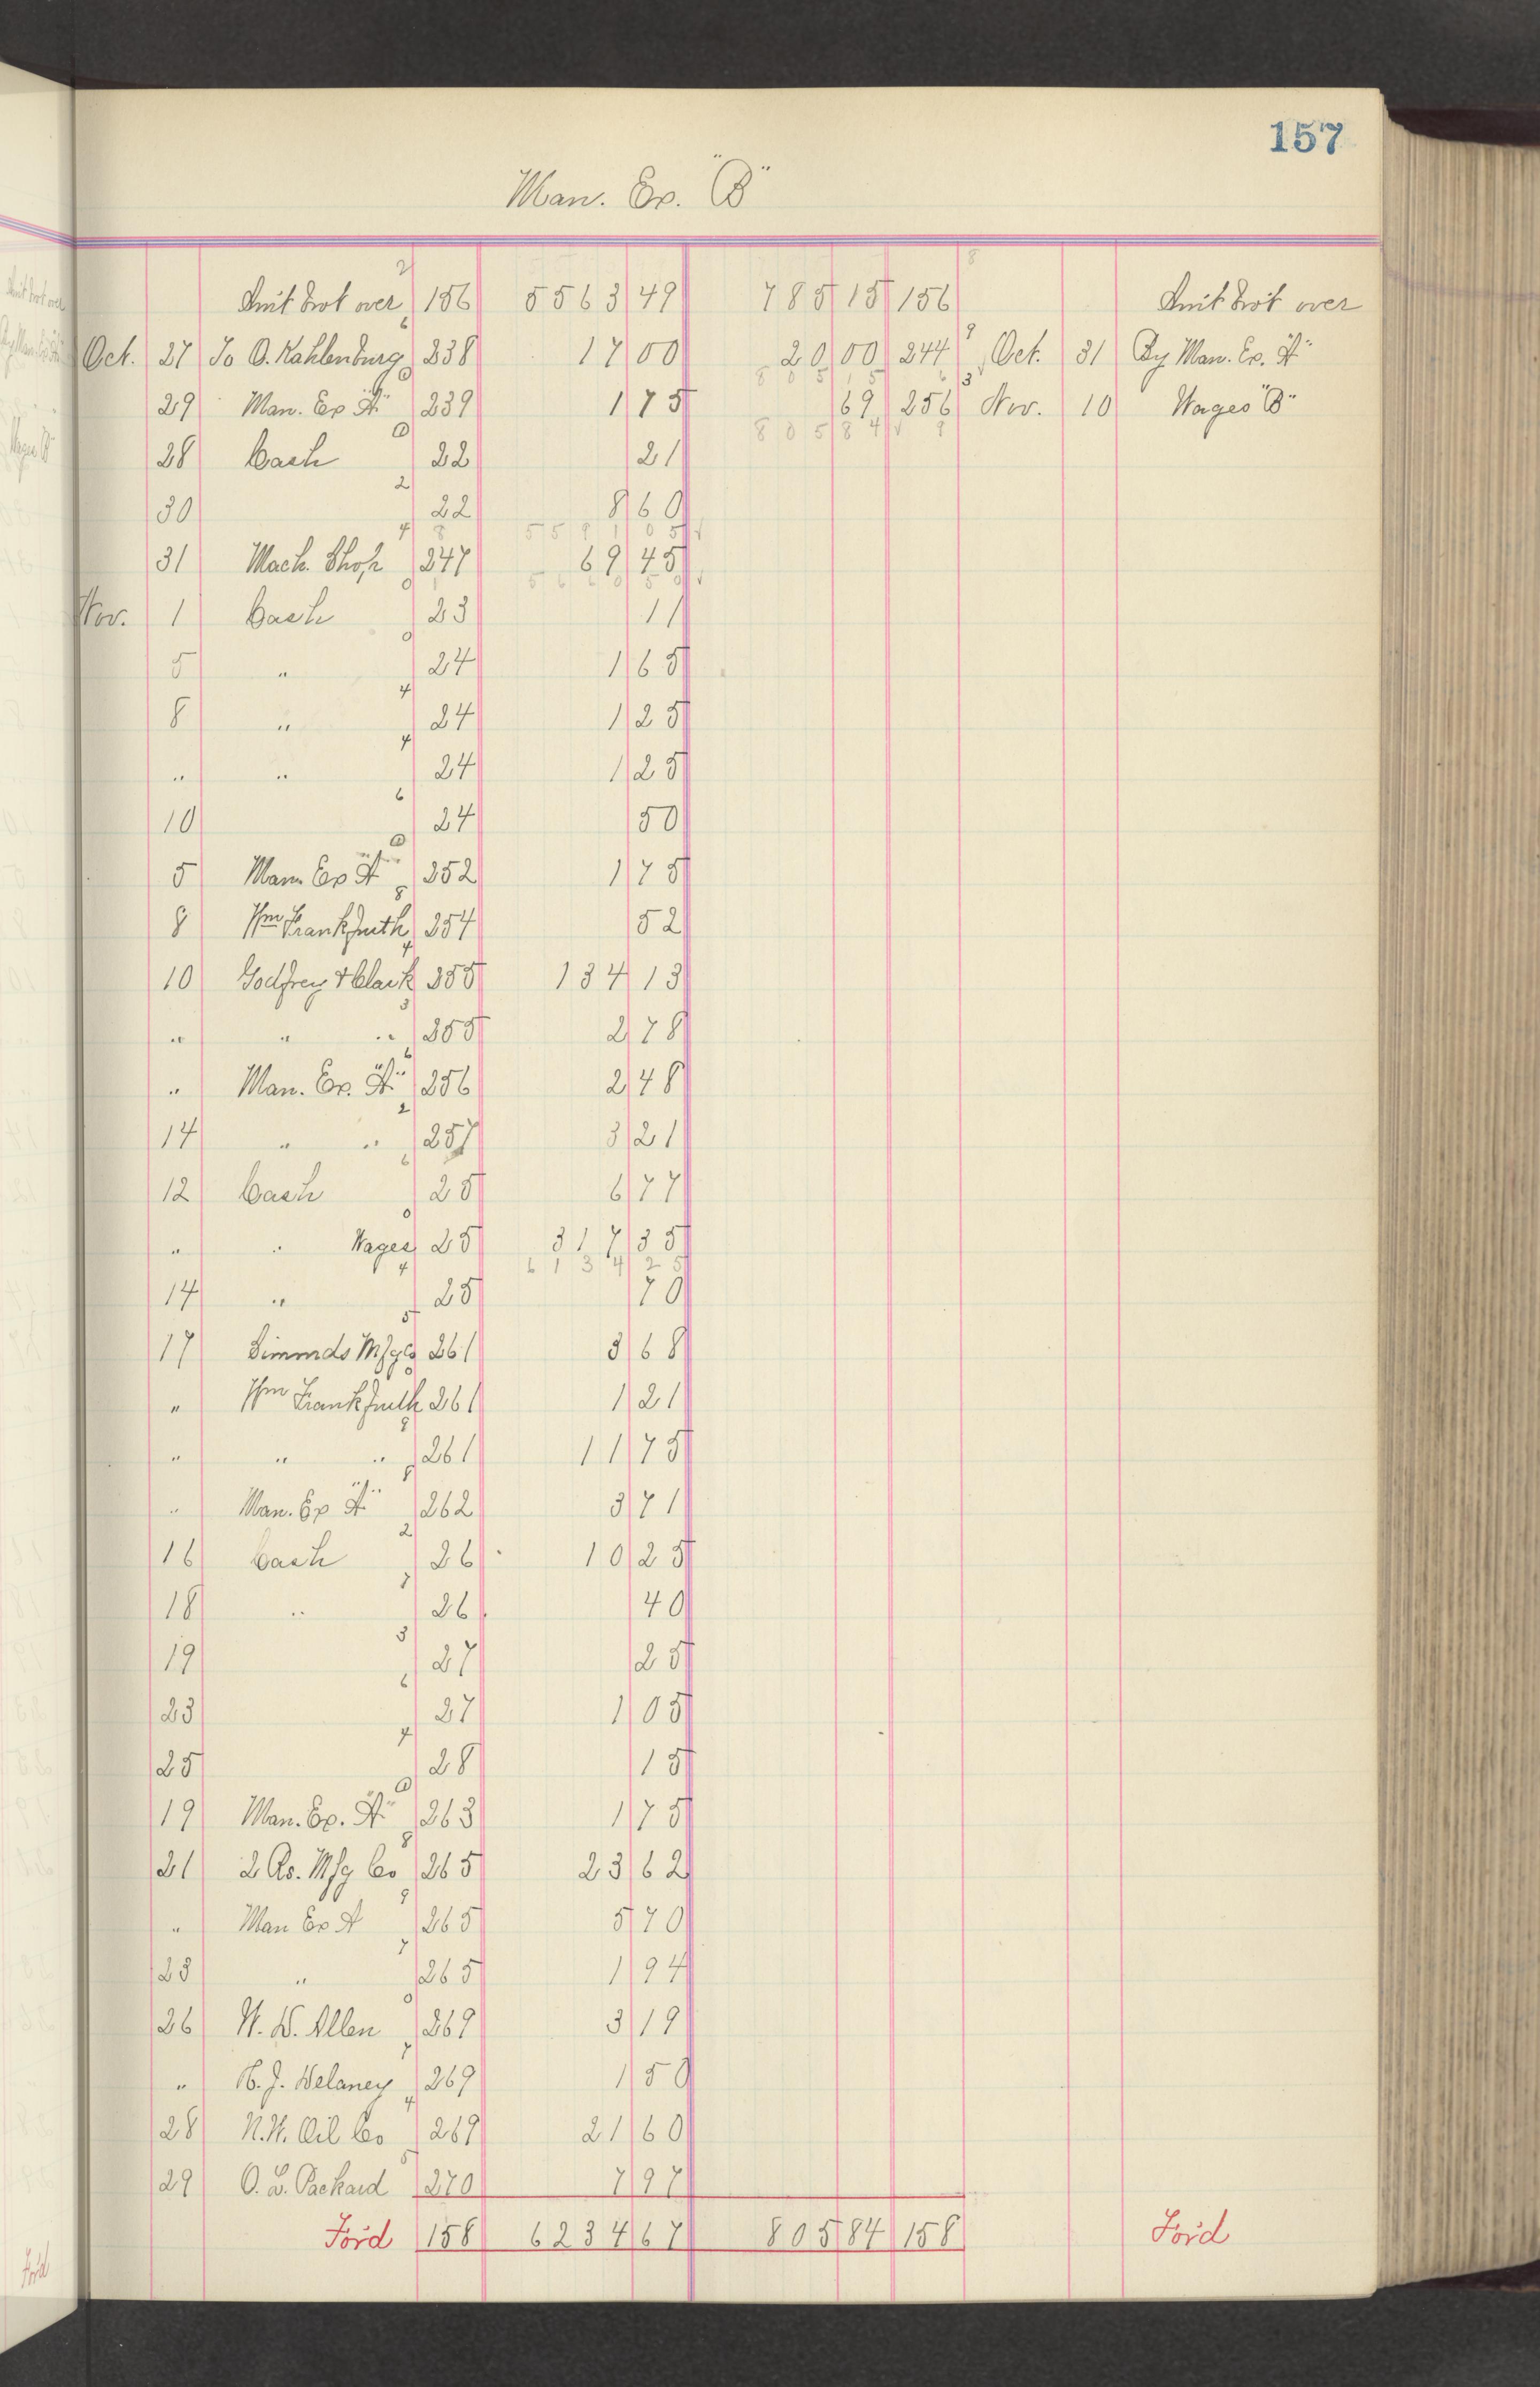 157
Man. Ex. "B"
Amt Brot over 156 5563 49 785 15 156 Amt Brot over
Oct. 27 To O. Kahlenburg 238 17 00 20 00 244 Oct. 31 By Man. Ex. "A"
805 15
29 Man. Ex "A" 239 1 75 69 256 Nov. 10 Wages "B"
805 84
28 Cash 22 21
30 22 8 60
5591 05
31 Mach. Shop 247 69 45
5660 50
Nov. 1 Cash 23 11
5 " 24 1 65
8 " 24 1 25
" " 24 1 25
10 24 50
5 Man Ex "A" 252 1 75
8 Wm Frankfurth 254 52
10 Godfrey & Clark 255 134 13
" " " 255 2 78
" Man. Ex. "A" 256 2 48
14 " " 257 3 21
12 Cash 25 6 77
" " Wages 25 317 35
6134 25
14 " 25 70
17 Simmds Mfg Co 261 3 68
" Wm Frankfurth 261 1 21
" " " 261 11 75
" Man. Ex "A" 262 3 71
16 Cash 26 10 25
18 " 26 40
19 27 25
23 27 1 05
25 28 15
19 Man. Ex. "A" 263 1 75
21 2 Rs. Mfg Co 265 23 62
" Man Ex A 265 5 70
23 " 265 1 94
26 W. D. Allen 269 3 19
" J. Delaney 269 1 50
28 N.W. Oil Co 269 21 60
29 O. L. Packard 270 7 97
Ford 158 6234 67 805 84 158 Ford